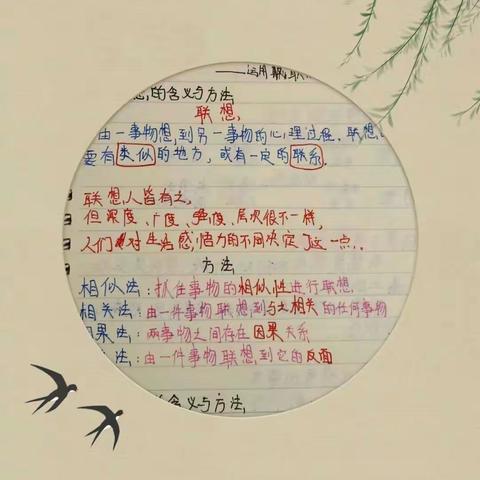 ——运用联想
想的含义与方法
联想
由一事物想到另一事物的心理过程。联想
要有类似的地方，或有一定的联系。
联想人皆有之，
但深度、广度、角度、层次很不一样，
人们对生活感悟力的不同决定了这一点。
方法
相似法：抓住事物的相似性进行联想
相关法：由一件事物联想到与之相关的任何事物
因果法：两事物之间存在因果关系
法：由一件事物联想到它的反面
含义与方法